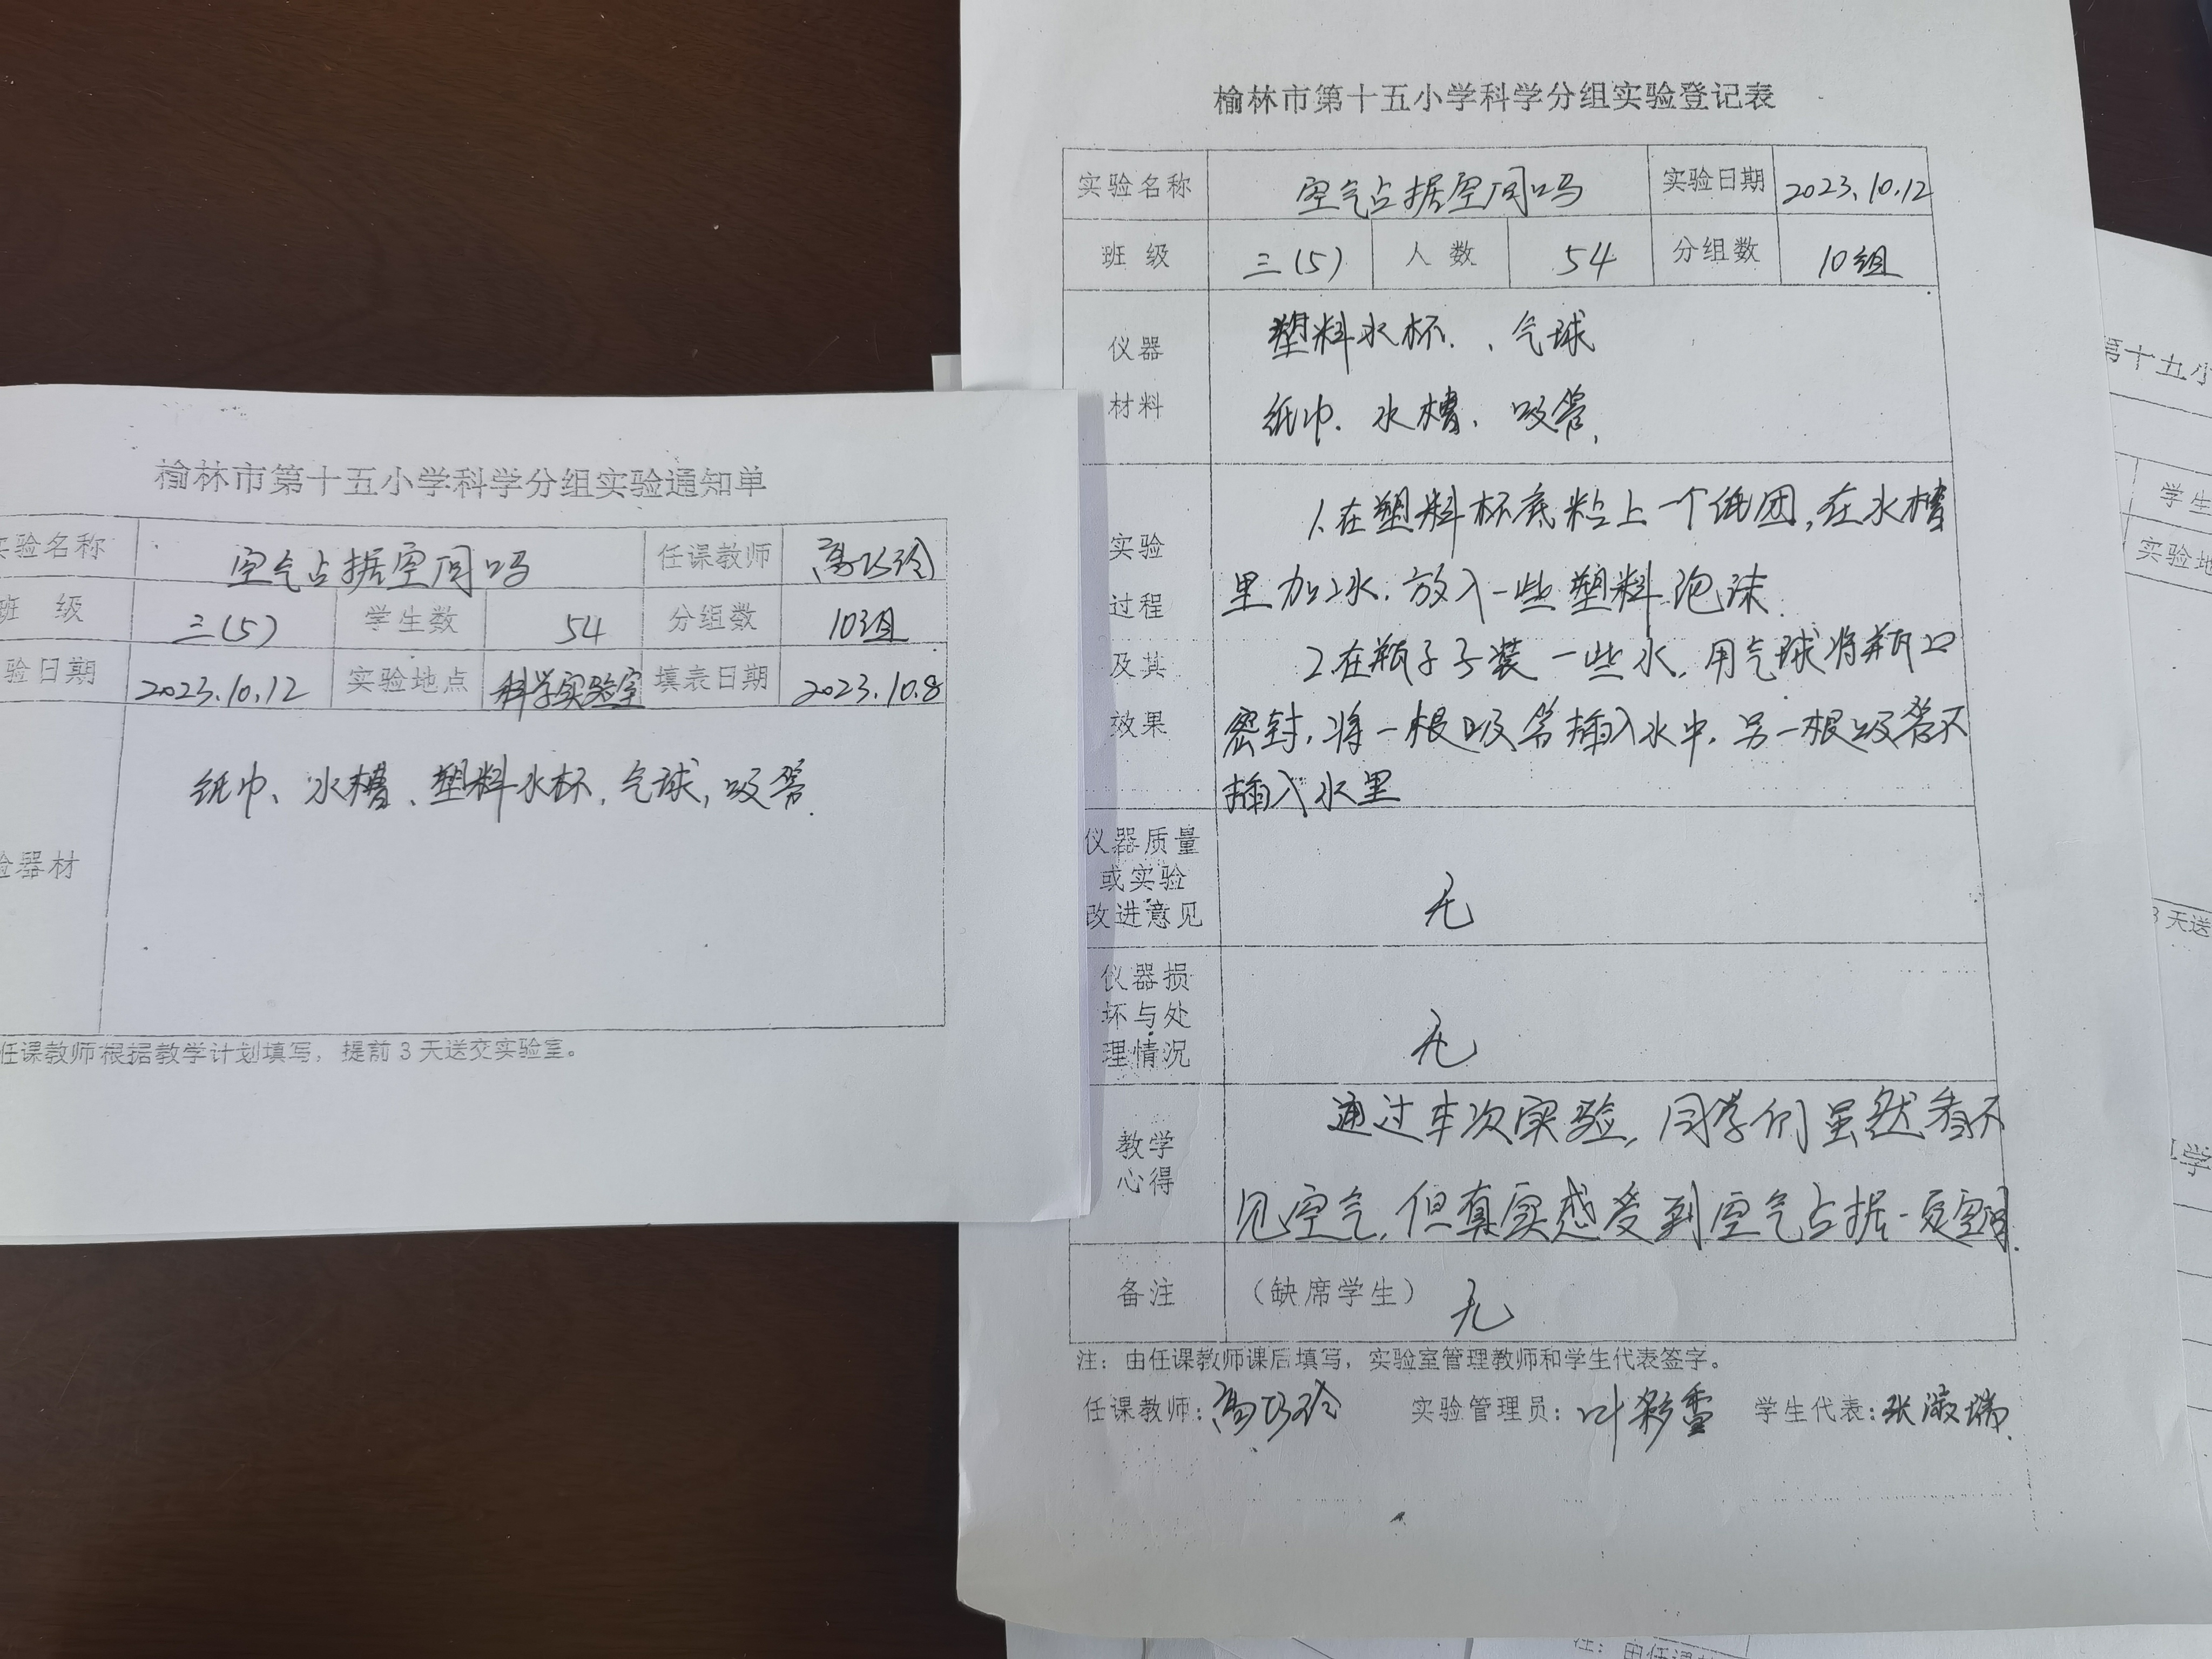 榆林市第十五小学科学分组实验通知单
实验名称 空气占据空间吗 任课教师 高巧玲
班 级 三(5) 学生数 54 分组数 10组
验日期 2023.10.12 实验地点 科学实验室 填表日期 2023.10.8
验器材 纸巾、水槽、塑料水杯,气球,吸管.
任课教师根据教学计划填写,提前3天送交实验室。
榆林市第十五小学科学分组实验登记表
实验名称 空气占据空间吗 实验日期 2023.10.12
班 级 三(5) 人 数 54 分组数 10组
仪器材料
塑料水杯、气球
纸巾、水槽、吸管.
实验过程及其效果
1.在塑料杯底粘上一个纸团,在水槽
里加水.放入一些塑料泡沫.
2.在瓶子子装一些水,用气球将瓶口
密封,将一根吸管插入水中,另一根吸管不
插入水里
仪器质量或实验改进意见 无
仪器损坏与处理情况 无
教学心得
通过本次实验,同学们虽然看不
见空气,但真实感受到空气占据一定空间.
备注 (缺席学生) 无
注:由任课教师课后填写,实验室管理教师和学生代表签字。
任课教师:高巧玲 实验管理员:叶彩雪 学生代表:张淑瑞.
第十五小
学生
实验地
3天送
学
注:由任课